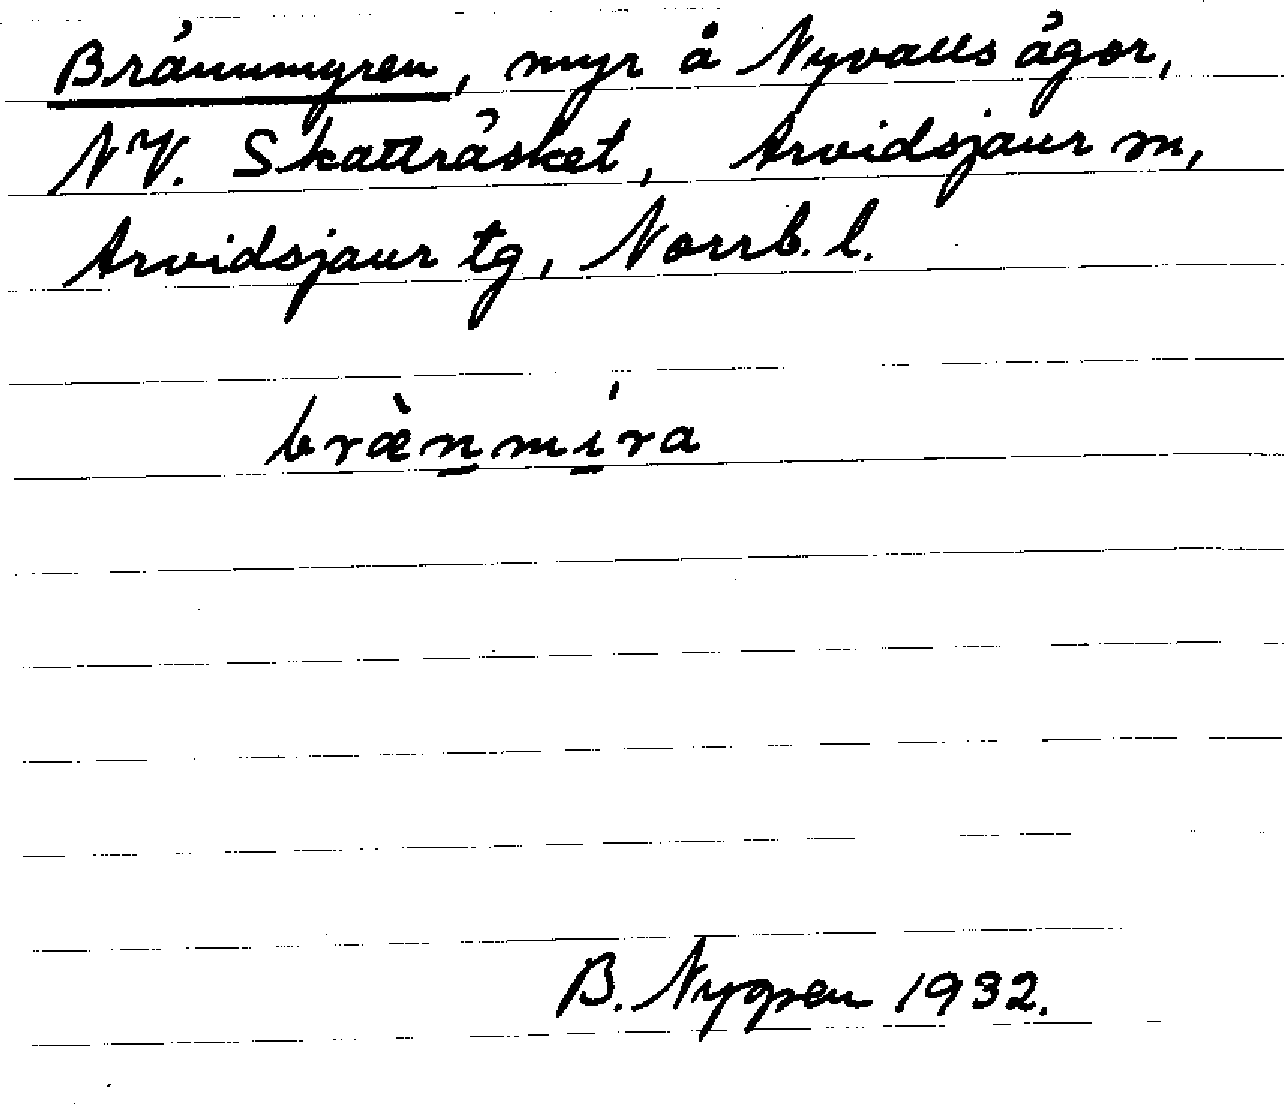 Brännmyren, myr å Nyvalls ägor,
NV. Skatträsket, Arvidsjaur sn,
Arvidsjaur tg, Norrb. l.
bræ̀n̲mi̲̍ra
B. Nygren 1932.